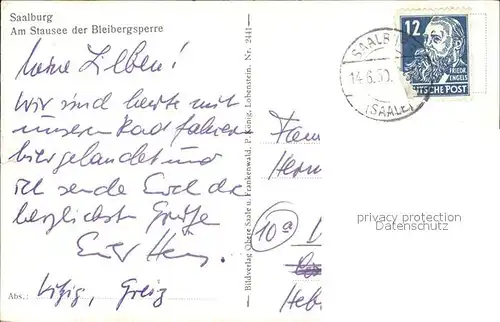 Saalburg
Am Stausee der Bleibergsperre
Meine Lieben!
Wir sind heute mit
unseren Rad fahren
hier gelandet und
ich sende Euch die
herzlichsten Grüße
Euer
Abs.: Greiz
Bildverlag Obere Saale u. Frankenwald, P. König, Lobenstein. Nr. 2441
12
FRIEDR.
ENGELS
DEUTSCHE POST
SAALB
14.6.50.
(SAALE)
Fam
10a
privacy protection
Datenschutz